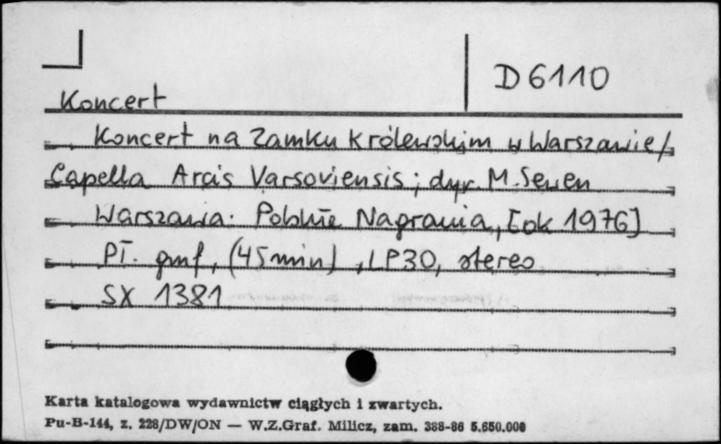 D 6110
Koncert
Koncert na Zamku Królewskim w Warszawie /
Capella Arcis Varsoviensis ; dyr. M. Sewen
Warszawa : Polskie Nagrania, [ok 1976]
Pł. gmf, (45 min), LP30, stereo
SX 1381
Karta katalogowa wydawnictw ciągłych i zwartych.
Pu-B-144, z. 228/DW/ON — W.Z.Graf. Milicz, zam. 388-86 5.650.000